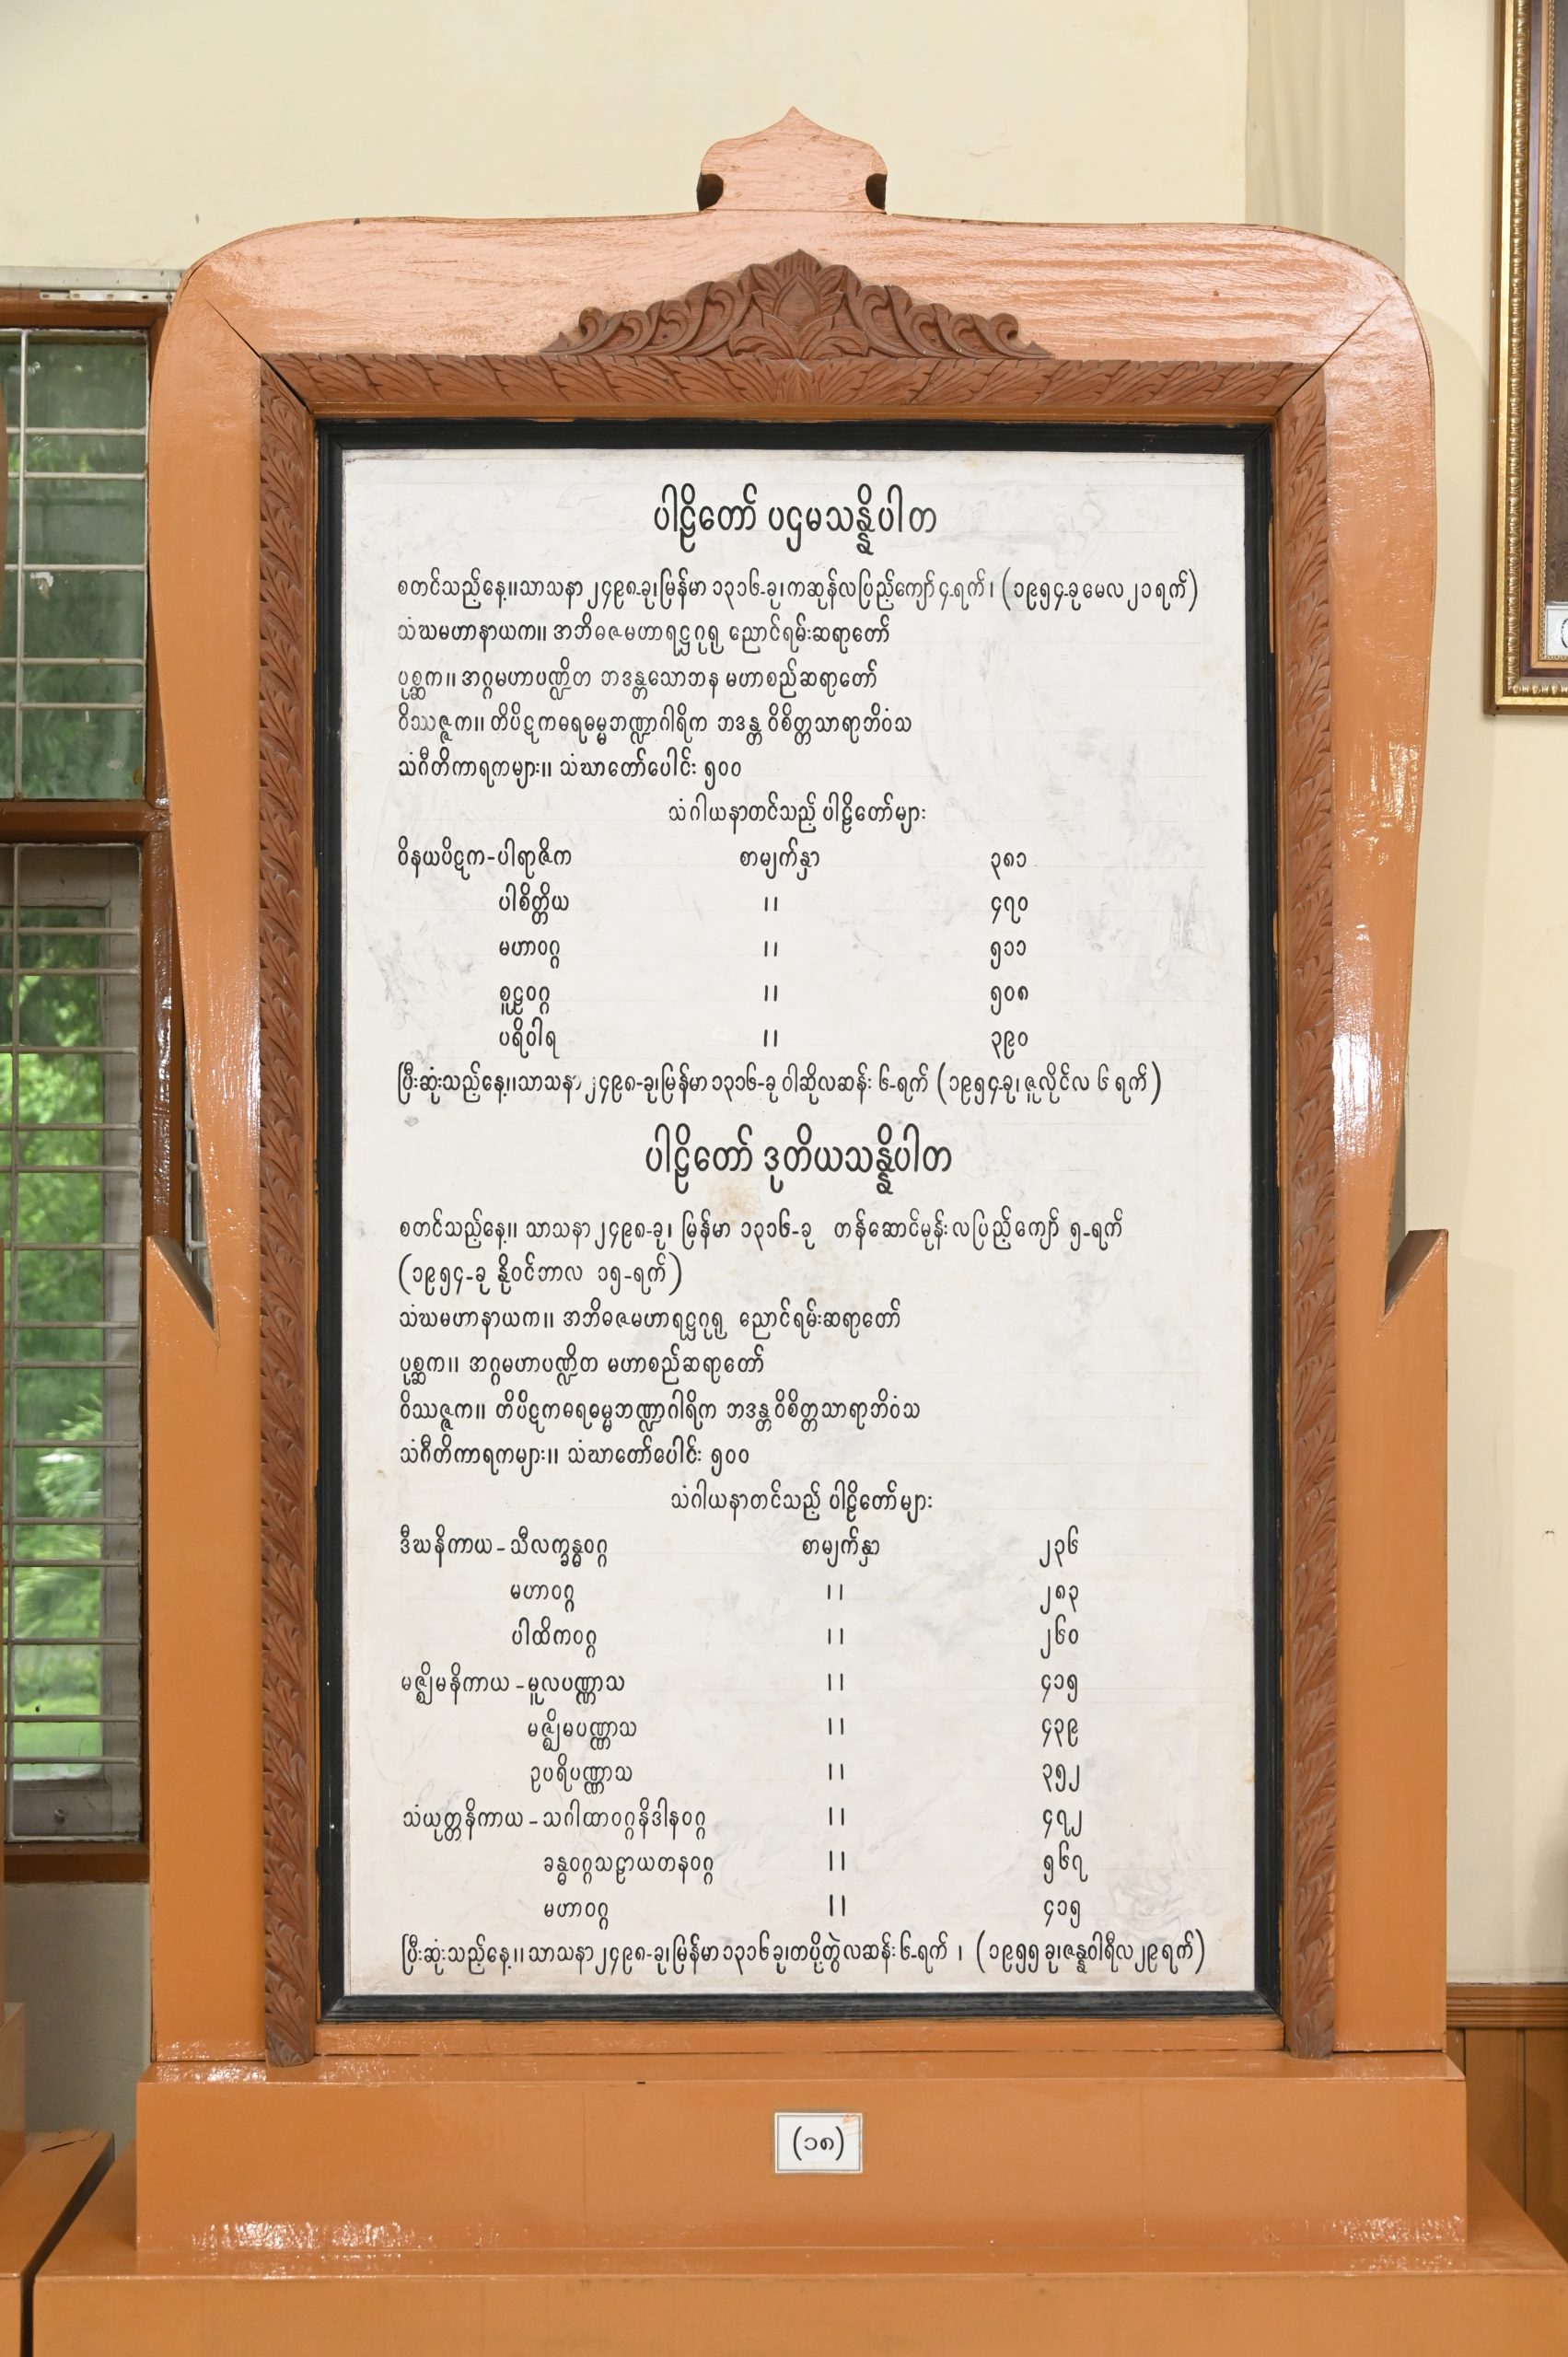 ပါဠိတော် ပဌမသန္နိပါတ
စတင်သည့်နေ့။သာသနာ ၂၄၉၈-ခု၊မြန်မာ ၁၃၁၆-ခု၊ကဆုန်လပြည့်ကျော် ၄-ရက်၊ (၁၉၅၄-ခု မေလ ၂၁ ရက်)
သံဃမဟာနာယက။ အဘိဓဇမဟာရဋ္ဌဂုရု ညောင်ရမ်းဆရာတော်
ပုစ္ဆက။ အဂ္ဂမဟာပဏ္ဍိတ ဘဒန္တသောဘန မဟာစည်ဆရာတော်
ဝိဿဇ္ဇက။ တိပိဋကဓရဓမ္မဘဏ္ဍာဂါရိက ဘဒန္တ ဝိစိတ္တသာရာဘိဝံသ
သံဂီတိကာရကများ။ သံဃာတော်ပေါင်း ၅၀၀
သံဂါယနာတင်သည့် ပါဠိတော်များ
ဝိနယပိဋက-ပါရာဇိက စာမျက်နှာ ၃၈၁
ပါစိတ္တိယ ၊၊ ၄၇၀
မဟာဝဂ္ဂ ၊၊ ၅၁၁
စူဠဝဂ္ဂ ၊၊ ၅၀၈
ပရိဝါရ ၊၊ ၃၉၀
ပြီးဆုံးသည့်နေ့၊၊သာသနာ ၂၄၉၈-ခု၊မြန်မာ ၁၃၁၆-ခု ဝါဆိုလဆန်း ၆-ရက် (၁၉၅၄-ခု၊ ဇူလိုင်လ ၆ ရက်)
ပါဠိတော် ဒုတိယသန္နိပါတ
စတင်သည့်နေ့။ သာသနာ ၂၄၉၈-ခု၊ မြန်မာ ၁၃၁၆-ခု တန်ဆောင်မုန်းလပြည့်ကျော် ၅-ရက်
(၁၉၅၄-ခု နိုဝင်ဘာလ ၁၅-ရက်)
သံဃမဟာနာယက။ အဘိဓဇမဟာရဋ္ဌဂုရု ညောင်ရမ်းဆရာတော်
ပုစ္ဆက။ အဂ္ဂမဟာပဏ္ဍိတ မဟာစည်ဆရာတော်
ဝိဿဇ္ဇက။ တိပိဋကဓရဓမ္မဘဏ္ဍာဂါရိက ဘဒန္တဝိစိတ္တသာရာဘိဝံသ
သံဂီတိကာရကများ။ သံဃာတော်ပေါင်း ၅၀၀
သံဂါယနာတင်သည့် ပါဠိတော်များ
ဒီဃနိကာယ - သီလက္ခန္ဓဝဂ္ဂ စာမျက်နှာ ၂၃၆
မဟာဝဂ္ဂ ၊၊ ၂၈၃
ပါထိကဝဂ္ဂ ၊၊ ၂၆၀
မဇ္ဈိမနိကာယ - မူလပဏ္ဏာသ ၊၊ ၄၁၅
မဇ္ဈိမပဏ္ဏာသ ၊၊ ၄၃၉
ဥပရိပဏ္ဏာသ ၊၊ ၃၅၂
သံယုတ္တနိကာယ - သဂါထာဝဂ္ဂနိဒါနဝဂ္ဂ ၊၊ ၄၇၂
ခန္ဓဝဂ္ဂသဠာယတနဝဂ္ဂ ၊၊ ၅၆၇
မဟာဝဂ္ဂ ၊၊ ၄၁၅
ပြီးဆုံးသည့်နေ့။ သာသနာ ၂၄၉၈-ခု၊မြန်မာ ၁၃၁၆ ခု၊တပို့တွဲလဆန်း ၆-ရက် ၊ (၁၉၅၅ ခု၊ဇန္နဝါရီလ ၂၉ ရက်)
(၁၈)